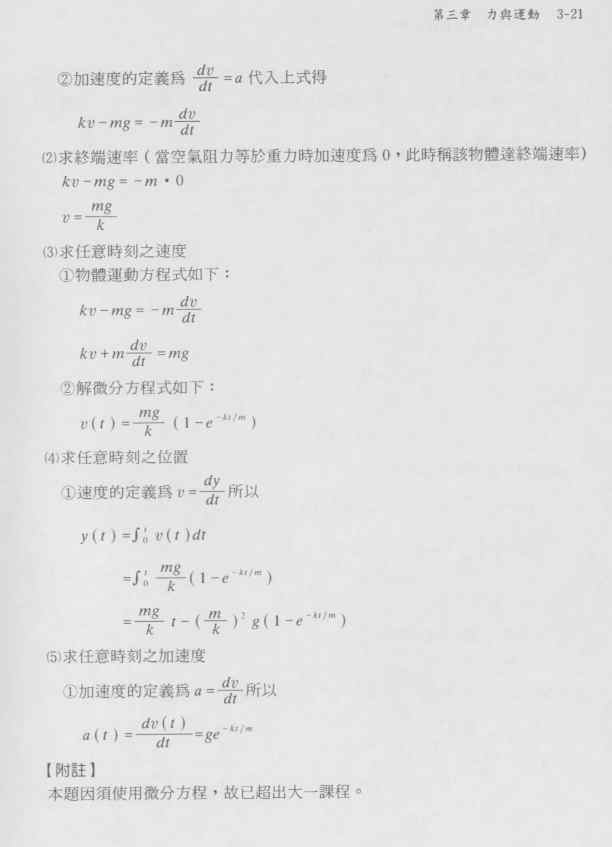 第三章　力與運動　3-21
②加速度的定義為 dv/dt = a 代入上式得
kv − mg = − m dv/dt
⑵求終端速率（當空氣阻力等於重力時加速度為 0，此時稱該物體達終端速率）
kv − mg = − m • 0
v = mg/k
⑶求任意時刻之速度
①物體運動方程式如下：
kv − mg = − m dv/dt
kv + m dv/dt = mg
②解微分方程式如下：
v(t) = mg/k (1 − e^{−kt/m})
⑷求任意時刻之位置
①速度的定義為 v = dy/dt 所以
y(t) = ∫₀ᵗ v(t)dt
= ∫₀ᵗ mg/k (1 − e^{−kt/m})
= mg/k t − (m/k)² g(1 − e^{−kt/m})
⑸求任意時刻之加速度
①加速度的定義為 a = dv/dt 所以
a(t) = dv(t)/dt = ge^{−kt/m}
【附註】
本題因須使用微分方程，故已超出大一課程。